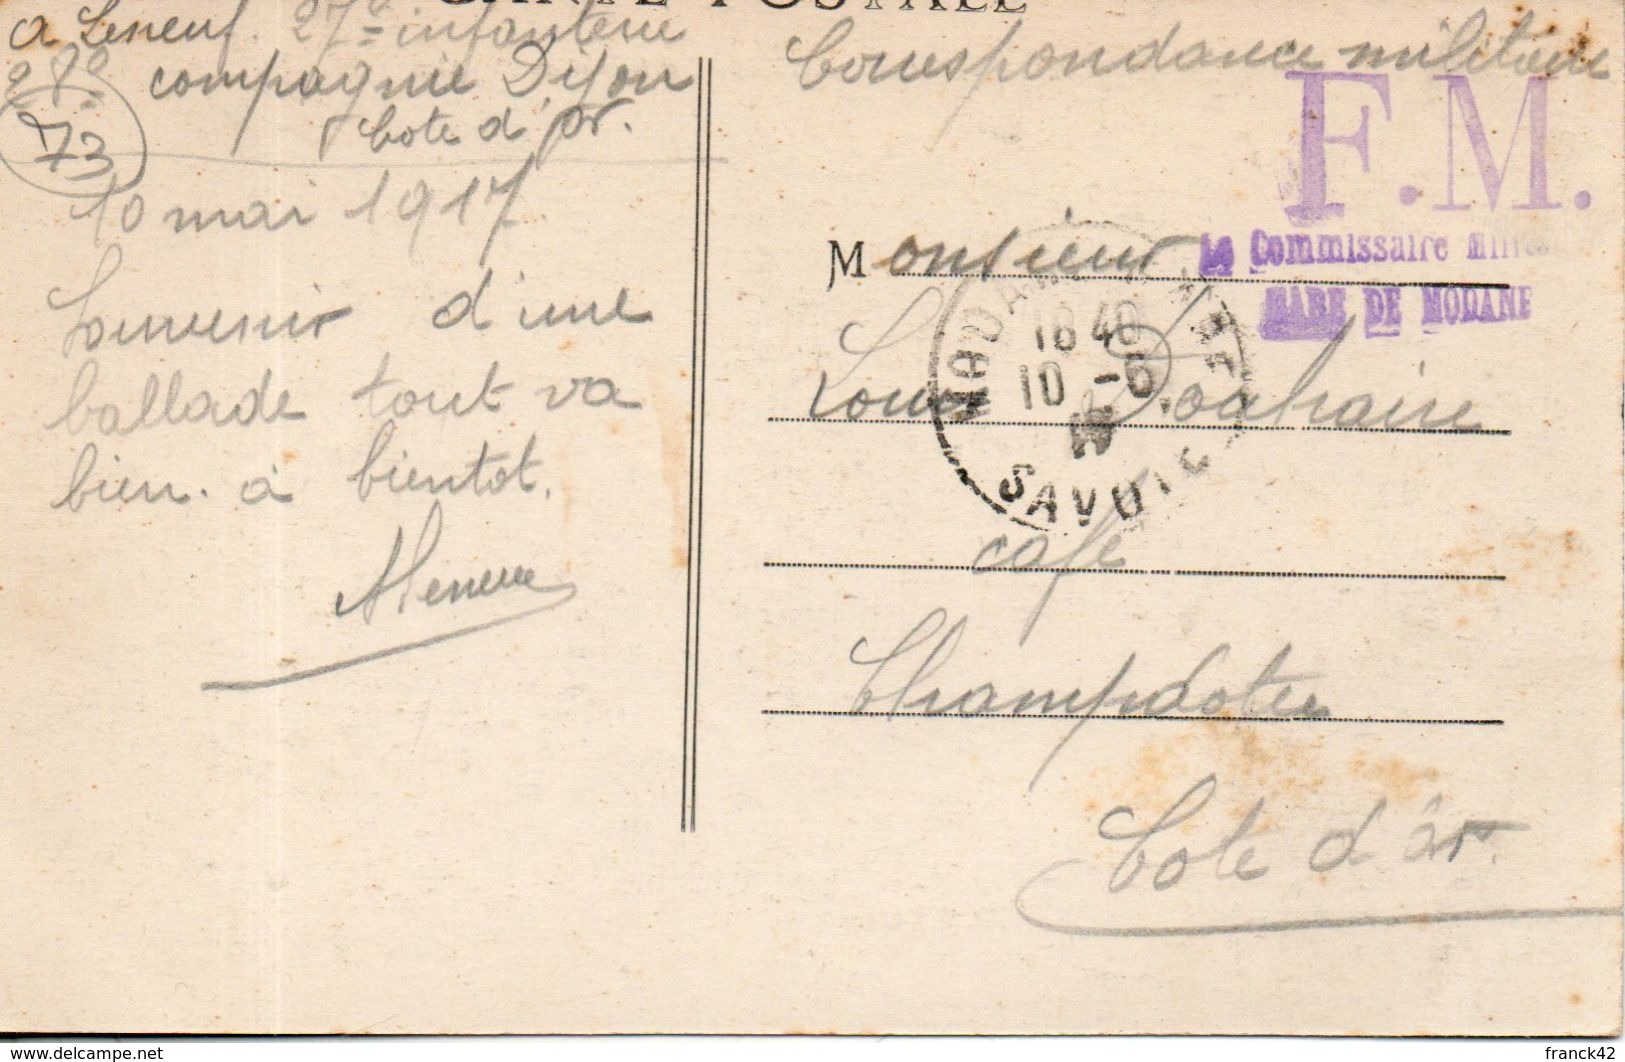 CARTE POSTALE
a Leneuf. 27e infanterie
28e compagnie Dijon
Cote d'or.
73
10 mai 1917
Souvenir d'une
ballade tout va
bien. à bientot.
ALeneuf
Correspondance militaire
F.M.
Le Commissaire Milit
GARE DE MODANE
Monsieur
Louis
café
Champdotre
Cote d'or.
MODANE
18 40
10 -5
17
SAVOIE
delcampe.net
franck42